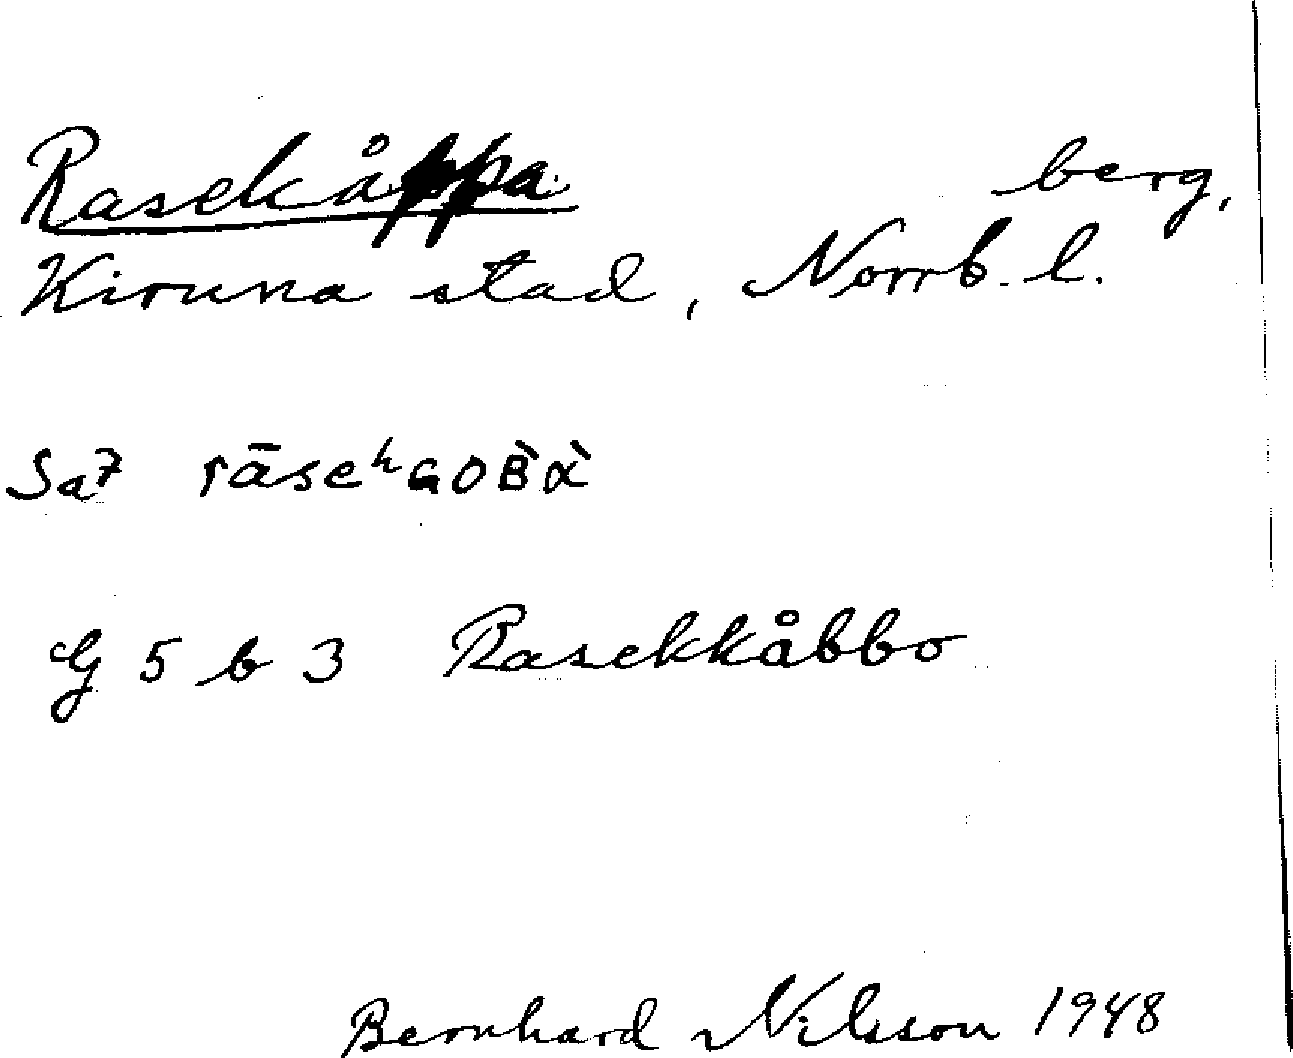 Rasekåppa berg,
Kiruna stad, Norrb. l.
Sa7 rāseʰGOB̀ὰ
G 5 b 3 Rasekkåbbo
Bernhard Nilsson 1948